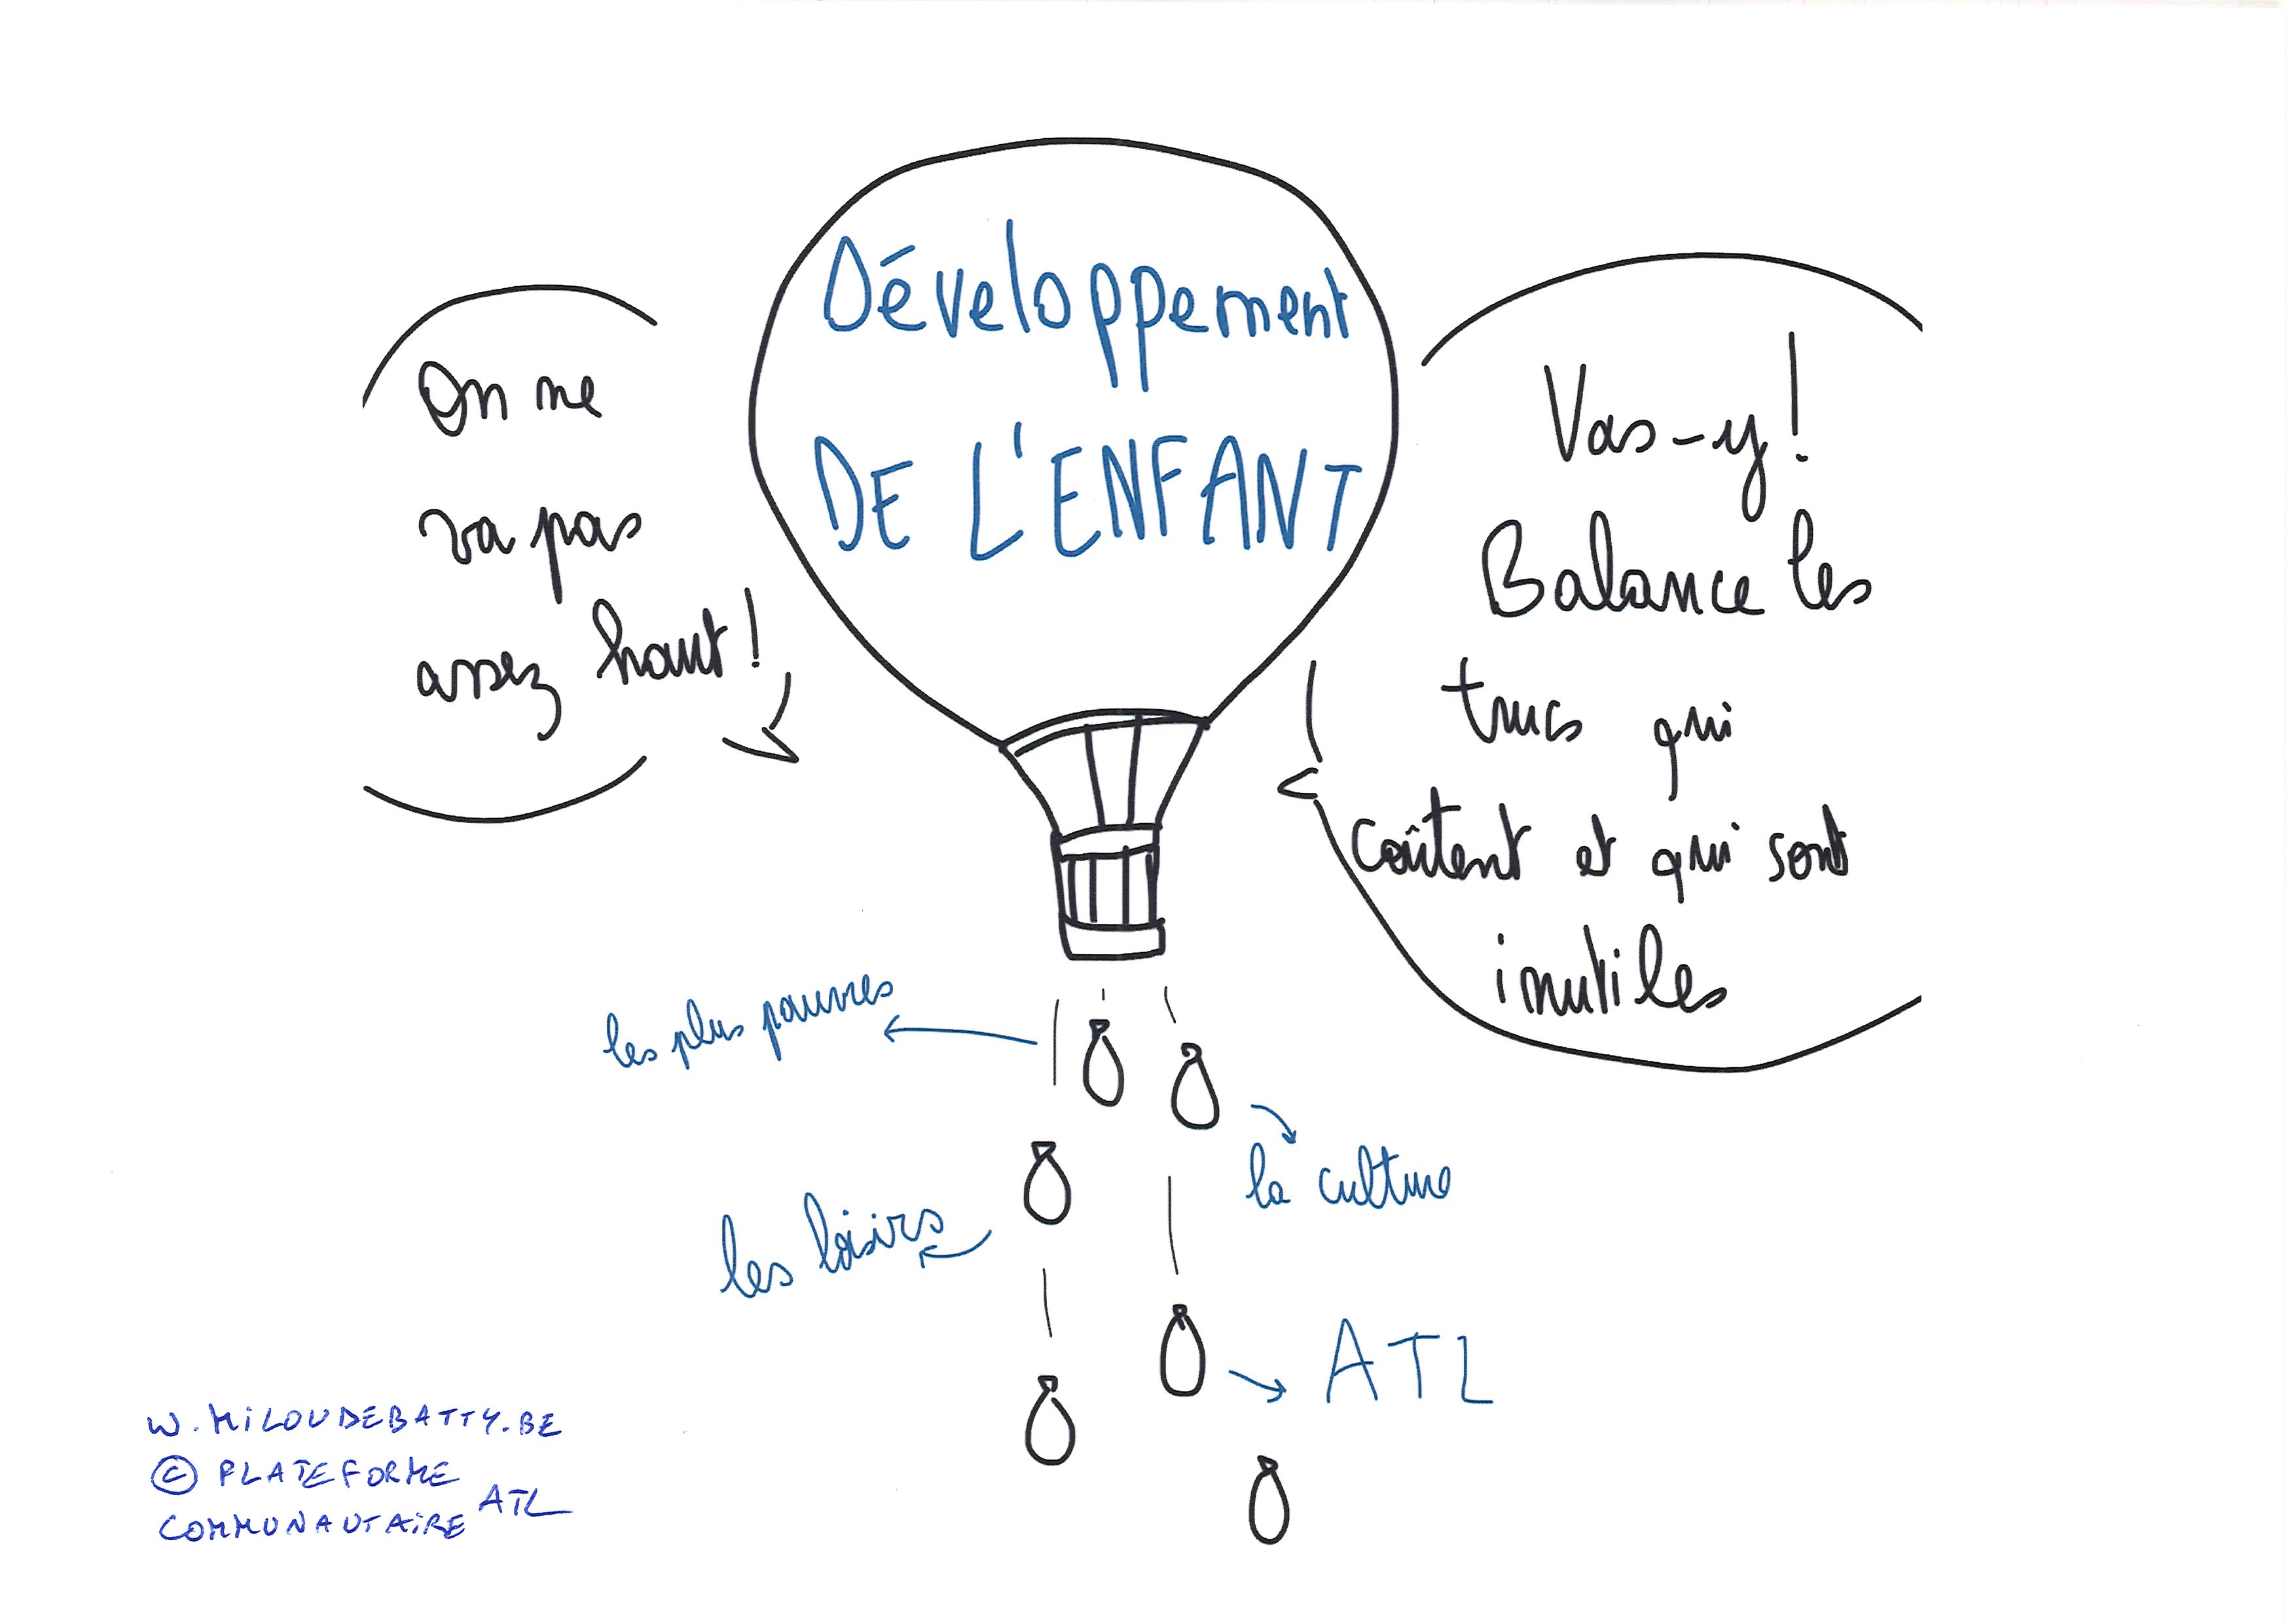 Développement
DE L'ENFANT
On ne
va pas
assez haut!
Vas-y!
Balance les
trucs qui
coûtent et qui sont
inutiles
les plus pauvres
la culture
les loisirs
ATL
W.MILOUDEBATTY.BE
© PLATEFORME
COMMUNAUTAIRE ATL